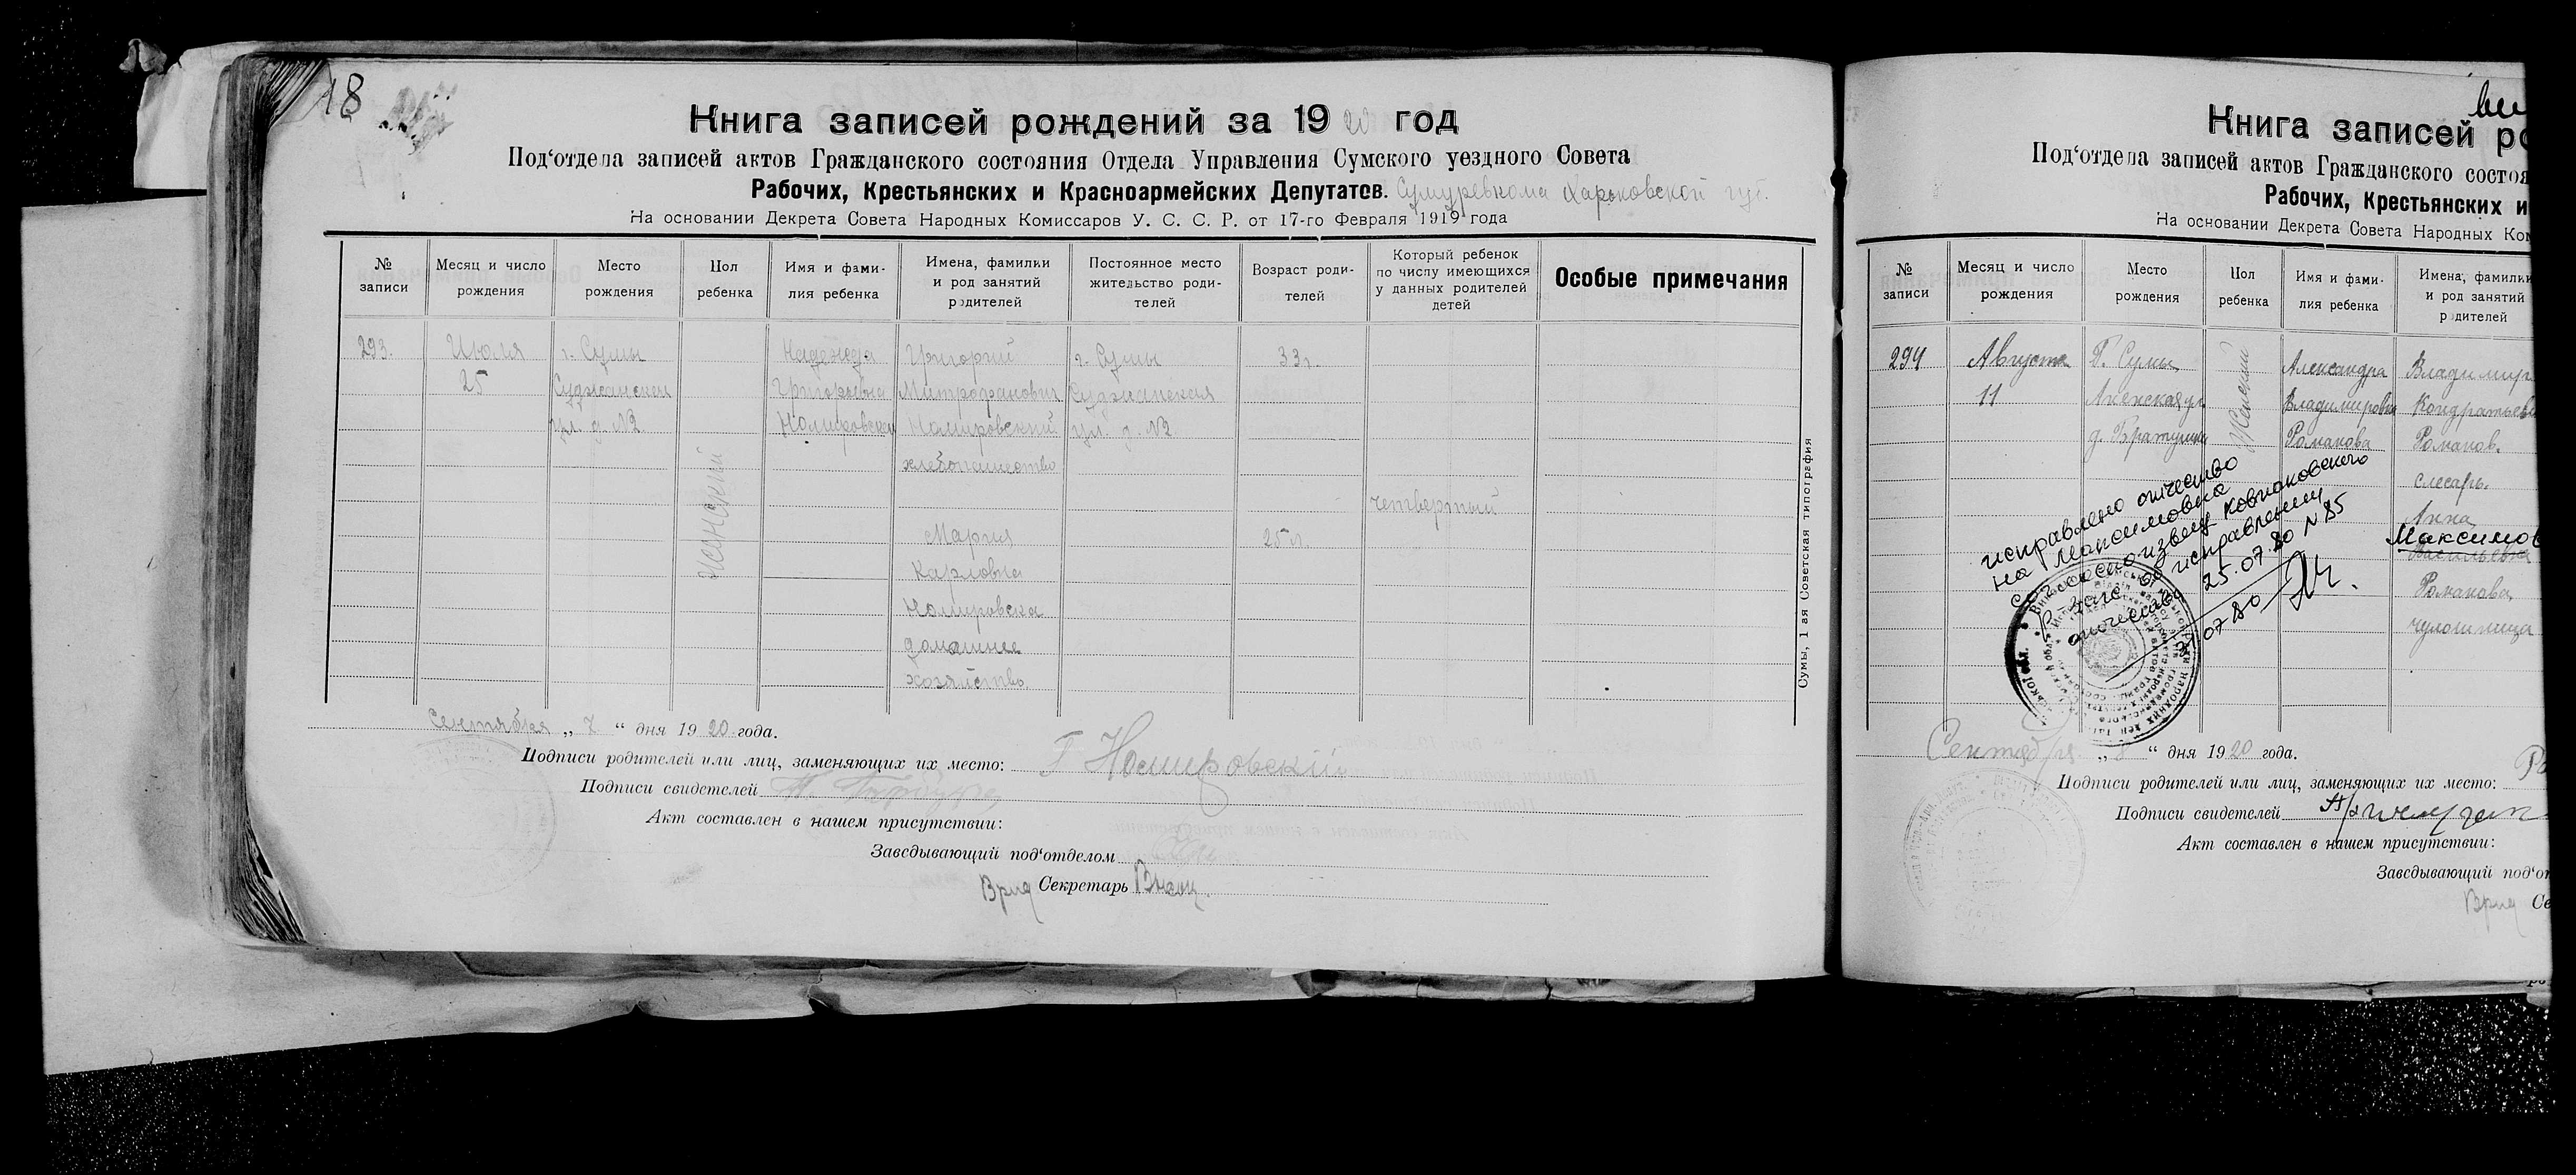 18
Книга записей рождений за 1920 год
Под‘отдела записей актов Гражданского состояния Отдела Управления Сумского уездного Совета
Рабочих, Крестьянских и Красноармейских Депутатов. Сумуревкома Харьковской губ.
На основании Декрета Совета Народных Комиссаров У. С. С. Р. от 17-го Февраля 1919 года
№ записи
Месяц и число рождения
Место рождения
Пол ребенка
Имя и фамилия ребенка
Имена, фамилки и род занятий родителей
Постоянное место жительство родителей
Возраст родителей
Который ребенок по числу имеющихся у данных родителей детей
Особые примечания
293. Июля г. Сумы Надежда Григорий г. Сумы 33 г.
25 Суджанская Григорьевна Митрофанович Суджанская
ул. д. №2. Номировский ул. д. №2.
хлебопашество
женский
четвертый
Мария 25 л.
Карловна
Номировска
домашнее
хозяйство.
Сумы, 1 ая Советская типография
Сентября „ 7 “ дня 1920 года.
Подписи родителей или лиц, заменяющих их место: Г Номировский
Подписи свидетелей
Акт составлен в нашем присутствии:
Заведывающий под‘отделом
Врид Секретарь
Книга записей ро
Под‘отдела записей актов Гражданского состоя
Рабочих, Крестьянских и
На основании Декрета Совета Народных Ком
№ записи
Месяц и число рождения
Место рождения
Пол ребенка
Имя и фамилия ребенка
Имена, фамилки и род занятий родителей
294 Августа Г. Сумы Женский Александра Владимир
11 Владимировна Кондратьев
Романова Романов.
слесарь.
Анна
Максимов
Васильевна
Романова
чулошница
исправлено отчество
на Максимовна
согласно извещ ковпаковского
р-загс об исправлении
отчества 25.07.80 N 85
07 80
Сентября „ “ дня 1920 года.
Подписи родителей или лиц, заменяющих их место: Ро
Подписи свидетелей
Акт составлен в нашем присутствии:
Заведывающий под‘от
Врид Се